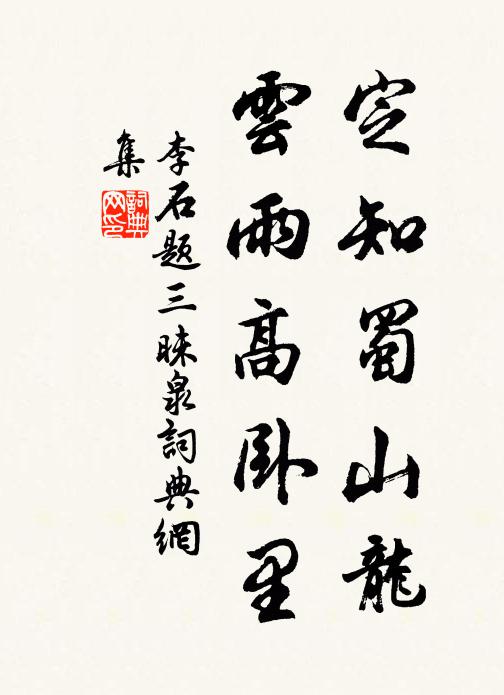 定知蜀山龍
雲雨高卧里
李石題三昧泉詞典網
集
詞典網印